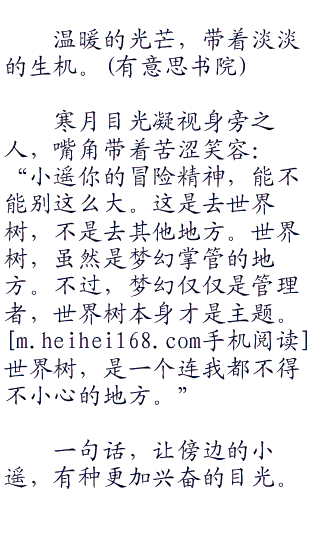 温暖的光芒，带着淡淡
的生机。(有意思书院)
寒月目光凝视身旁之
人，嘴角带着苦涩笑容：
“小遥你的冒险精神，能不
能别这么大。这是去世界
树，不是去其他地方。世界
树，虽然是梦幻掌管的地
方。不过，梦幻仅仅是管理
者，世界树本身才是主题。
[m.heihei168.com手机阅读]
世界树，是一个连我都不得
不小心的地方。”
一句话，让傍边的小
遥，有种更加兴奋的目光。